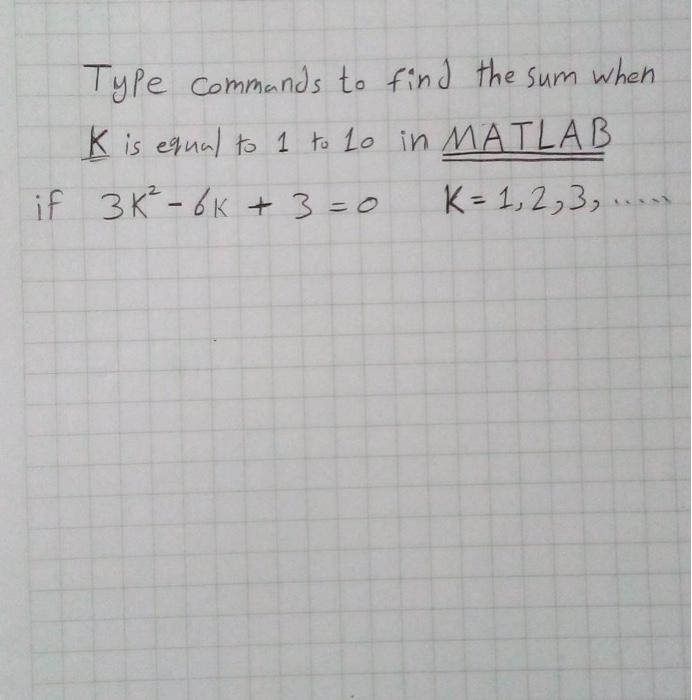 Type commands to find the sum when
K is equal to 1 to 10 in MATLAB
if 3K² - 6K + 3 = 0 K = 1, 2, 3, .....